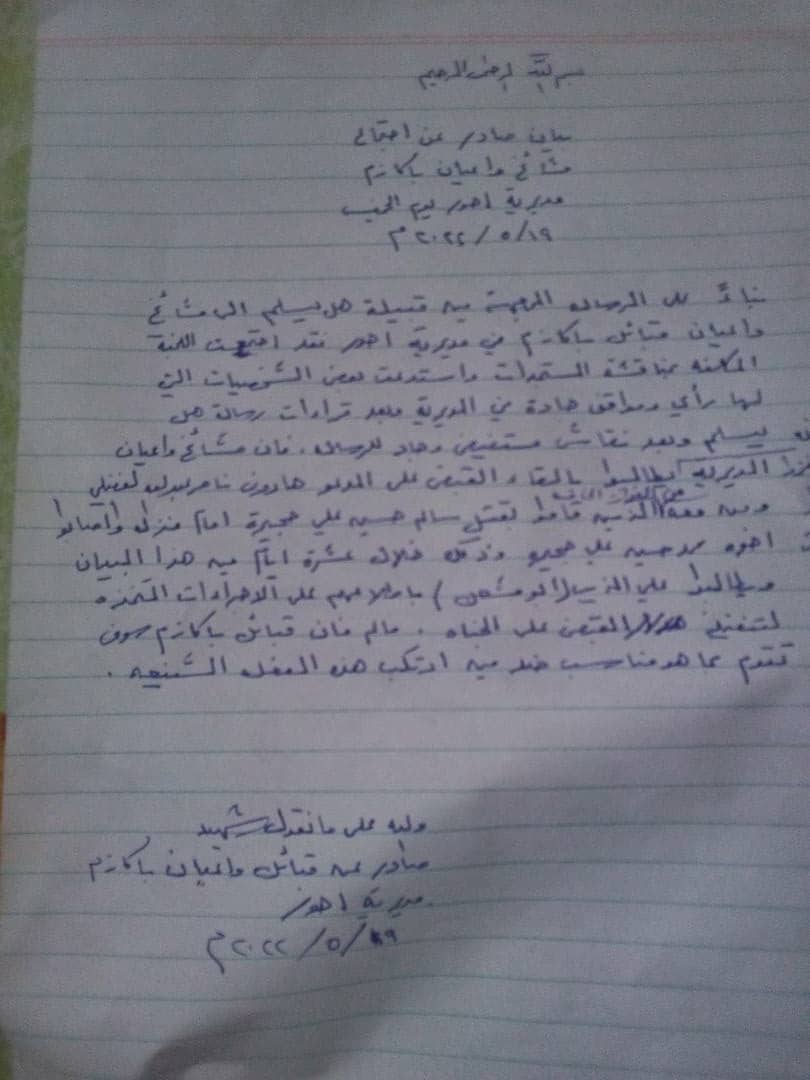 بسم الله الرحمن الرحيم
بيان صادر عن اجتماع
مشائخ واعيان باكازم
مديرية احور يوم الخميس
١٩/٥/٢٠٢٢م
بناءً على الرساله الموجهة من قبيلة هل يسلم الى مشائخ
واعيان قبائل باكازم في مديرية احور فقد اجتمعت اللجنة
المكلفه بمناقشة المستجدات واستدعت بعض الشخصيات التي
لها رأي ومواقف هادة في المديرية وبعد قراءات رسالة هل
يسلم وبعد نقاش مستفيض وجاد للرساله. فان مشائخ واعيان
هذا المديرية يطالبوا بالقاء القبض على المدعو هارون ناصر
ومن معه الذين قاموا بقتل سالم حسين علي حجيرة امام منزله واصابوا
اخوه محمد حسين علي وذلك خلال عشرة ايام من هذا البيان
ويطالبوا علي الذيب / باطلاعهم على الاجراءات المتخذه
لتنفيذ القبض على الجناه. مالم فان قبائل باكازم سوف
تقدم بما هو مناسب ضد من ارتكب هذه الفعله الشنيعه.
والله على ما نقول شهيد
صادر عن قبائل واعيان باكازم
مديرية احور
١٩/٥/٢٠٢٢م